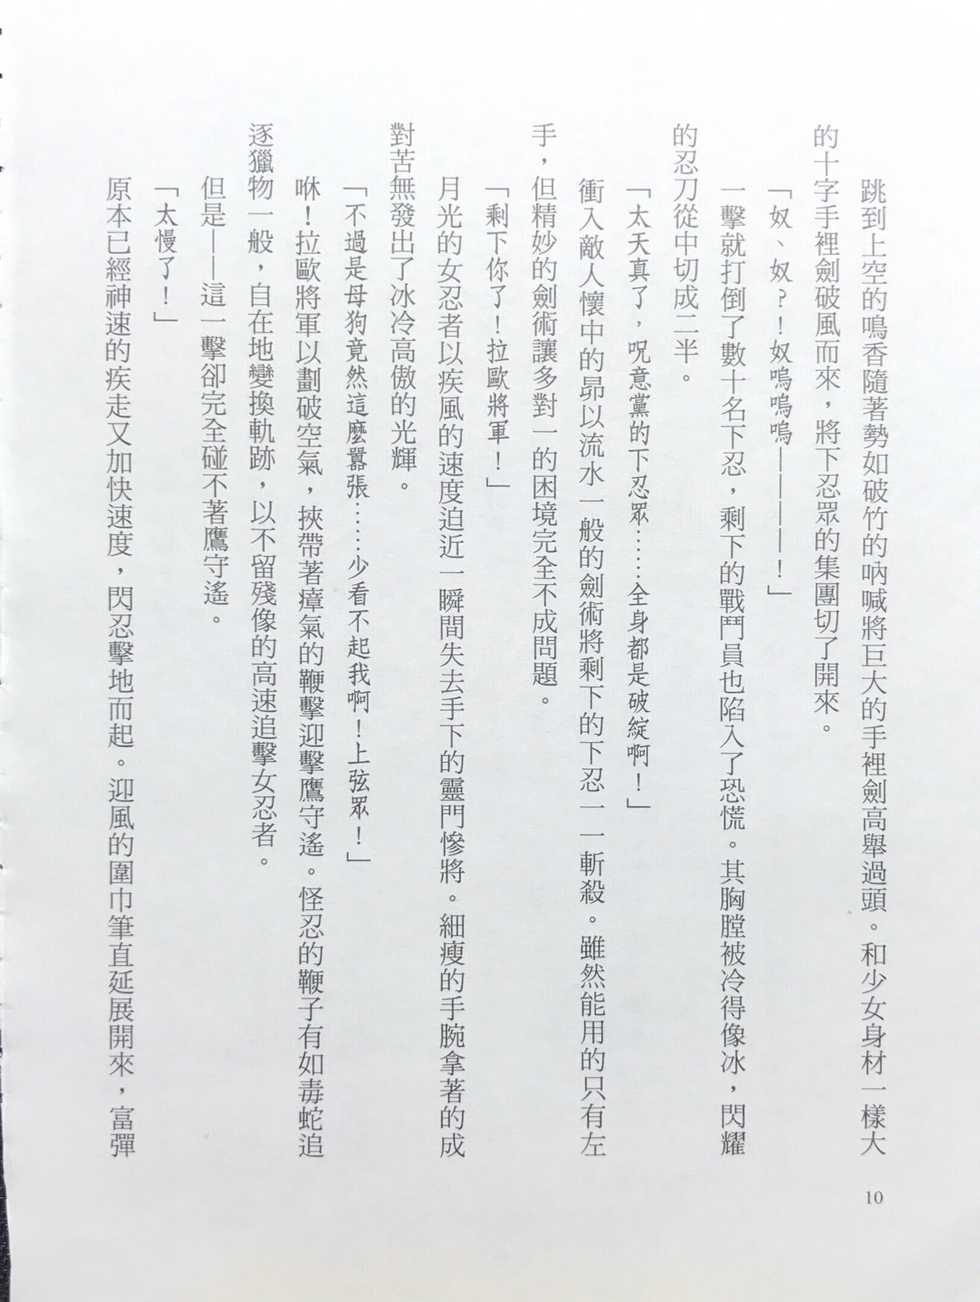 跳到上空的鳴香隨著勢如破竹的吶喊將巨大的手裡劍高舉過頭。和少女身材一樣大
的十字手裡劍破風而來，將下忍眾的集團切了開來。
「奴、奴？！奴嗚嗚嗚————！」
一擊就打倒了數十名下忍，剩下的戰鬥員也陷入了恐慌。其胸膛被冷得像冰，閃耀
的忍刀從中切成二半。
「太天真了，呪意黨的下忍眾……全身都是破綻啊！」
衝入敵人懷中的昴以流水一般的劍術將剩下的下忍一一斬殺。雖然能用的只有左
手，但精妙的劍術讓多對一的困境完全不成問題。
「剩下你了！拉歐將軍！」
月光的女忍者以疾風的速度迫近一瞬間失去手下的靈門慘將。細瘦的手腕拿著的成
對苦無發出了冰冷高傲的光輝。
「不過是母狗竟然這麼囂張……少看不起我啊！上弦眾！」
咻！拉歐將軍以劃破空氣，挾帶著瘴氣的鞭擊迎擊鷹守遙。怪忍的鞭子有如毒蛇追
逐獵物一般，自在地變換軌跡，以不留殘像的高速追擊女忍者。
但是——這一擊卻完全碰不著鷹守遙。
「太慢了！」
原本已經神速的疾走又加快速度，閃忍擊地而起。迎風的圍巾筆直延展開來，富彈
10